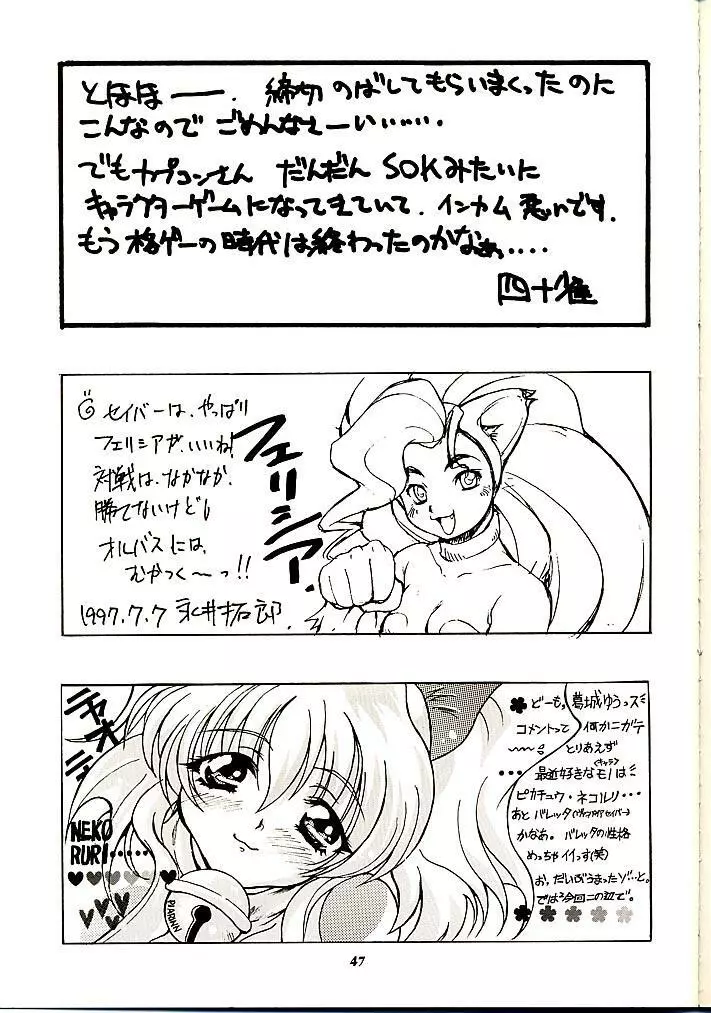 とほほ——. 締切 のばしてもらいまくったのに
こんなので ごめんなさーい……
でもカプコンさん だんだん SOKみたいに
キャラクターゲームになってきていて. インカム 悪いです.
もう 格ゲーの時代は終わったのかなぁっ....
四十雀
セイバーは、やっぱり
フェリシアが、いいね!
対戦は、なかなか、
勝てないけど!
オルバスには、
むかつく〜っ!!
1997.7.7 永井拓郎.
フェリシア
ニャオン
NEKO
RURI……
PIARNN
どーも。葛城ゆうっス
コメントって 何かニガテ
とりあえず
(キャラ)
最近好きなモノは
ピカチュウ・ネコルリ・・・
あと バレッタ(ヴァンパイアセイバー)
かなあ。バレッタの性格
めっちゃイイっす(笑)
お、だいぶうまったゾ…と。
では今回この辺で。
47